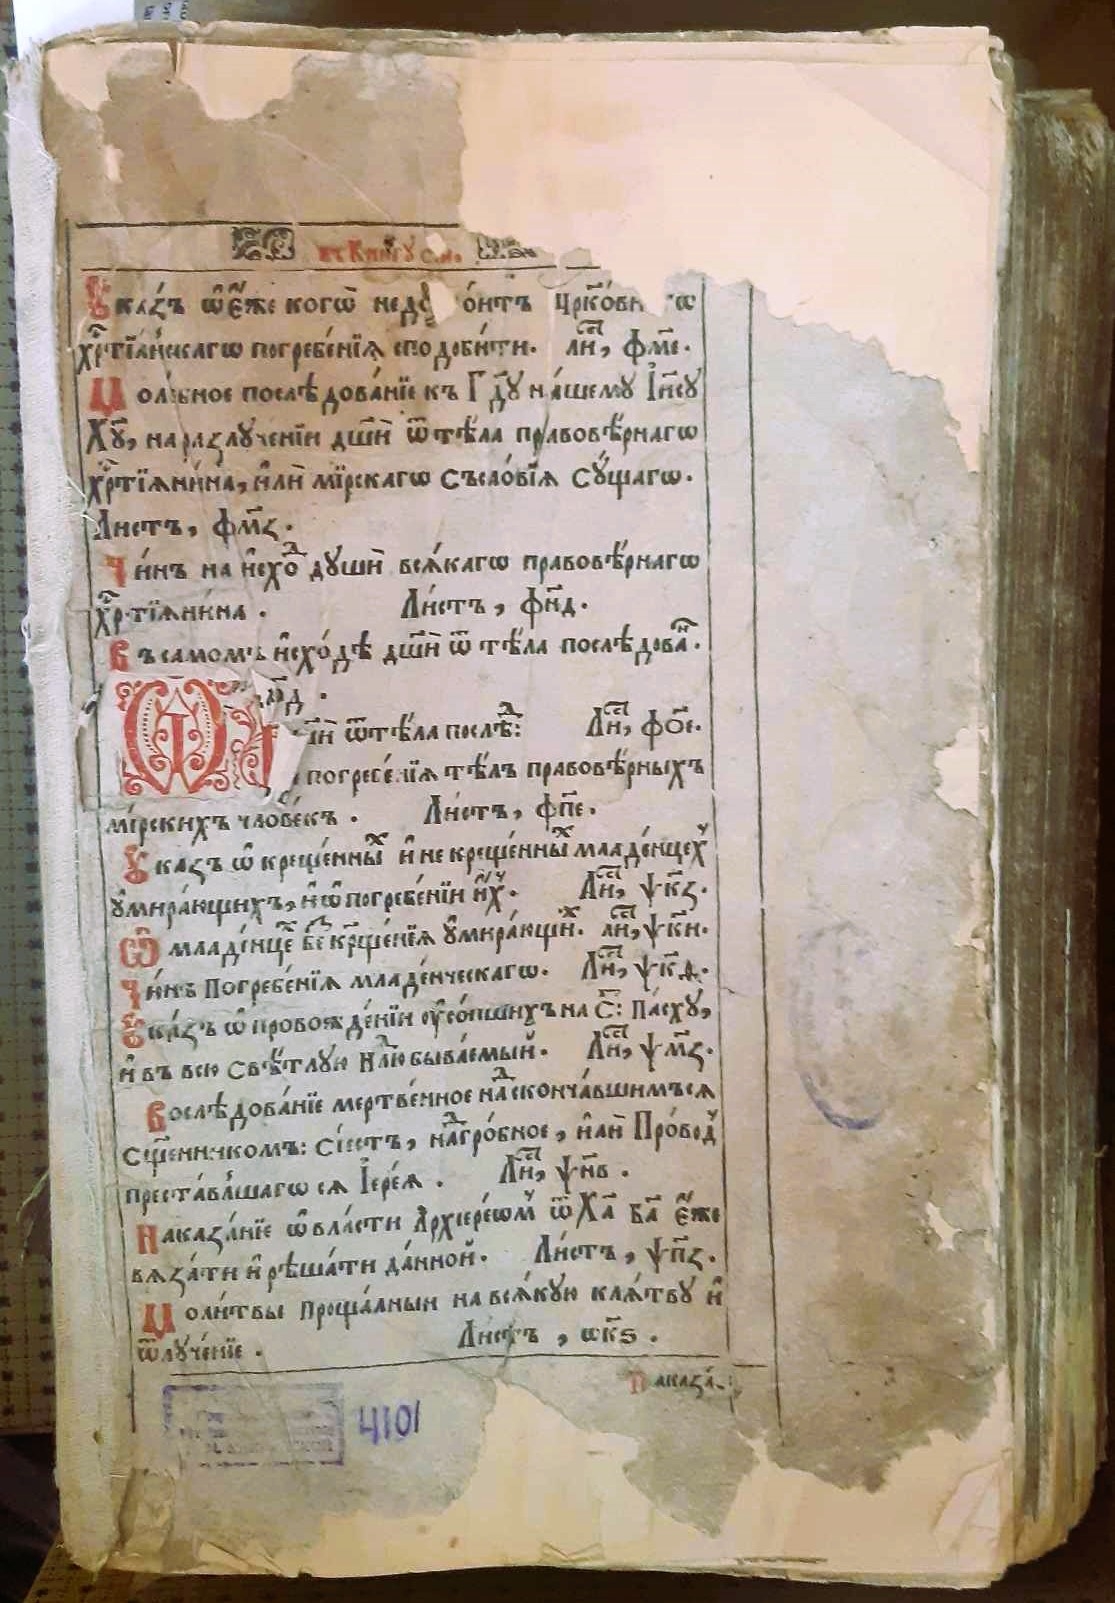 въ Книгу сїю.
Указъ ѿ Еже когѡ недо онтъ Црко́вн ѡ
хр҇тїа́нскагѡ погребе́нїѧ сподоби́ти. ли҇, фм҃е.
Моле́бное послѣдова́нїе къ Гд҇у на́шему Ї҆и҃су
Ху҃, на разлуче́нїи дш҃и̑ ѿ тѣ́ла правовѣ́рнагѡ
хр҇тїѧни́на, и҆лѝ мїрскагѡ съсло́вїѧ су́щагѡ.
Ли́стъ, фм҃з.
Чи́нъ на и҆схоⷣ души̑ всѧ́кагѡ правовѣ́рнагѡ
хр҇тїѧни́на. Ли́стъ, фн҃д.
Въ самомъ и҆схо́дѣ дш҃и̑ ѿ тѣ́ла послѣдоваⷩ.
ѿ тѣ́ла послѣⷣ: Лиⷭ, фо҃е.
погребе́нїѧ тѣ́лъ правовѣ́рныхъ
мі́рскихъ чловѣ́къ. Ли́стъ, фп҃е.
Указъ ѡ҆ креще́нныⷯ и҆ не креще́нныⷯ младе́нцеⷯ
у҆мира́ющихъ, и҆ ѡ҆ погребе́нїи и҆́ⷯ. Лиⷭ, ѱк҃з.
Ѡ҆ младе́нцеⷯ беⷥ кр҃ще́нїѧ у҆мира́ющиⷯ. лиⷭ, ѱк҃и.
Чи́нъ Погребе́нїѧ младе́нческагѡ. Лиⷭ,
Ука́зъ ѡ҆ провожде́нїи у҆со́пшихъ на С҃: Па́сху,
и҆ въ всю Свѣ́тлую Нлⷣю быва́емый. Лиⷭ, ѱм҃з.
Послѣдова́нїе мертве́нное наⷣ сконча́вшимъсѧ
Сщ҃енникомъ: Сіестъ, наⷣгро́бное, и҆лѝ Про́воⷣ
преста́вльшагѡ сѧ Їере́ѧ. Лиⷭ, ѱн҃в.
Наказа́нїе ѡ҆ вла́сти А҆рхїере́ѡмъ ѿ Ха҃ Ба҃ є҆́же
вѧза́ти и҆ рѣша́ти да́нной. Ли́стъ, ѱп҃з.
Моли́твы Проща́лныи на всѧ́кую клѧ́тву и҆
ѿлуче́нїе. Ли́стъ, ѡк҃ѕ.
Наказа́:
4101